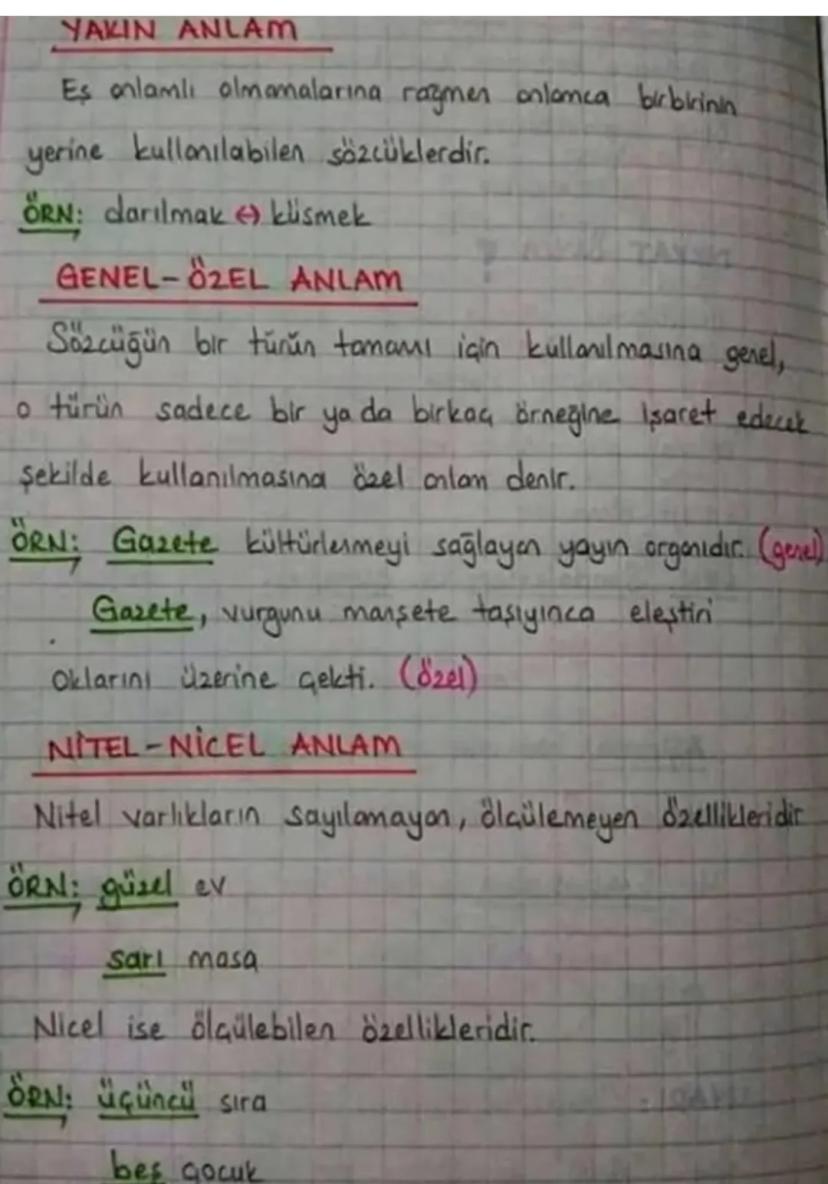 YAKIN ANLAM
Eş anlamlı olmamalarına rağmen anlamca birbirinin
yerine kullanılabilen sözcüklerdir.
ÖRN: darılmak ↔ küsmek
GENEL-ÖZEL ANLAM
Sözcüğün bir türün tamamı için kullanılmasına genel,
o türün sadece bir ya da birkaç örneğine işaret edecek
şekilde kullanılmasına özel anlam denir.
ÖRN: Gazete kültürlenmeyi sağlayan yayın organıdır. (genel)
Gazete, vurgunu manşete taşıyınca eleştiri
oklarını üzerine çekti. (özel)
NİTEL-NİCEL ANLAM
Nitel varlıkların sayılamayan, ölçülemeyen özellikleridir
ÖRN: güzel ev
sarı masa
Nicel ise ölçülebilen özellikleridir.
ÖRN: üçüncü sıra
beş çocuk